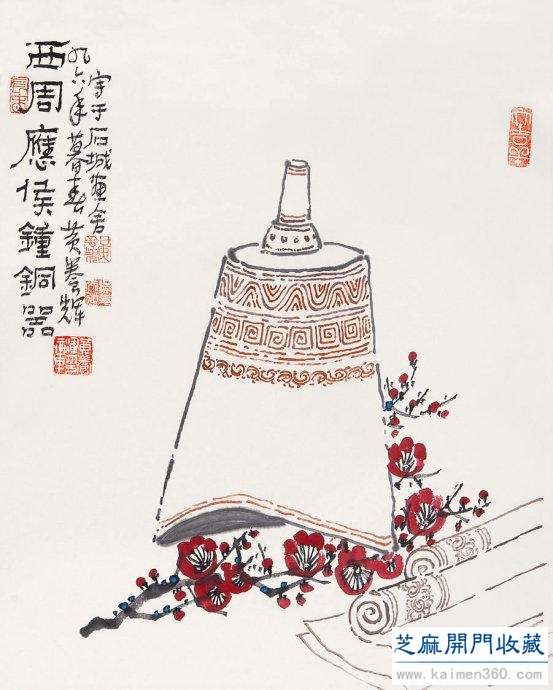 西周應侯鐘銅器
九六年暮春黄養輝
写于石城画舍
芝麻開門收藏
www.kaimen360.com